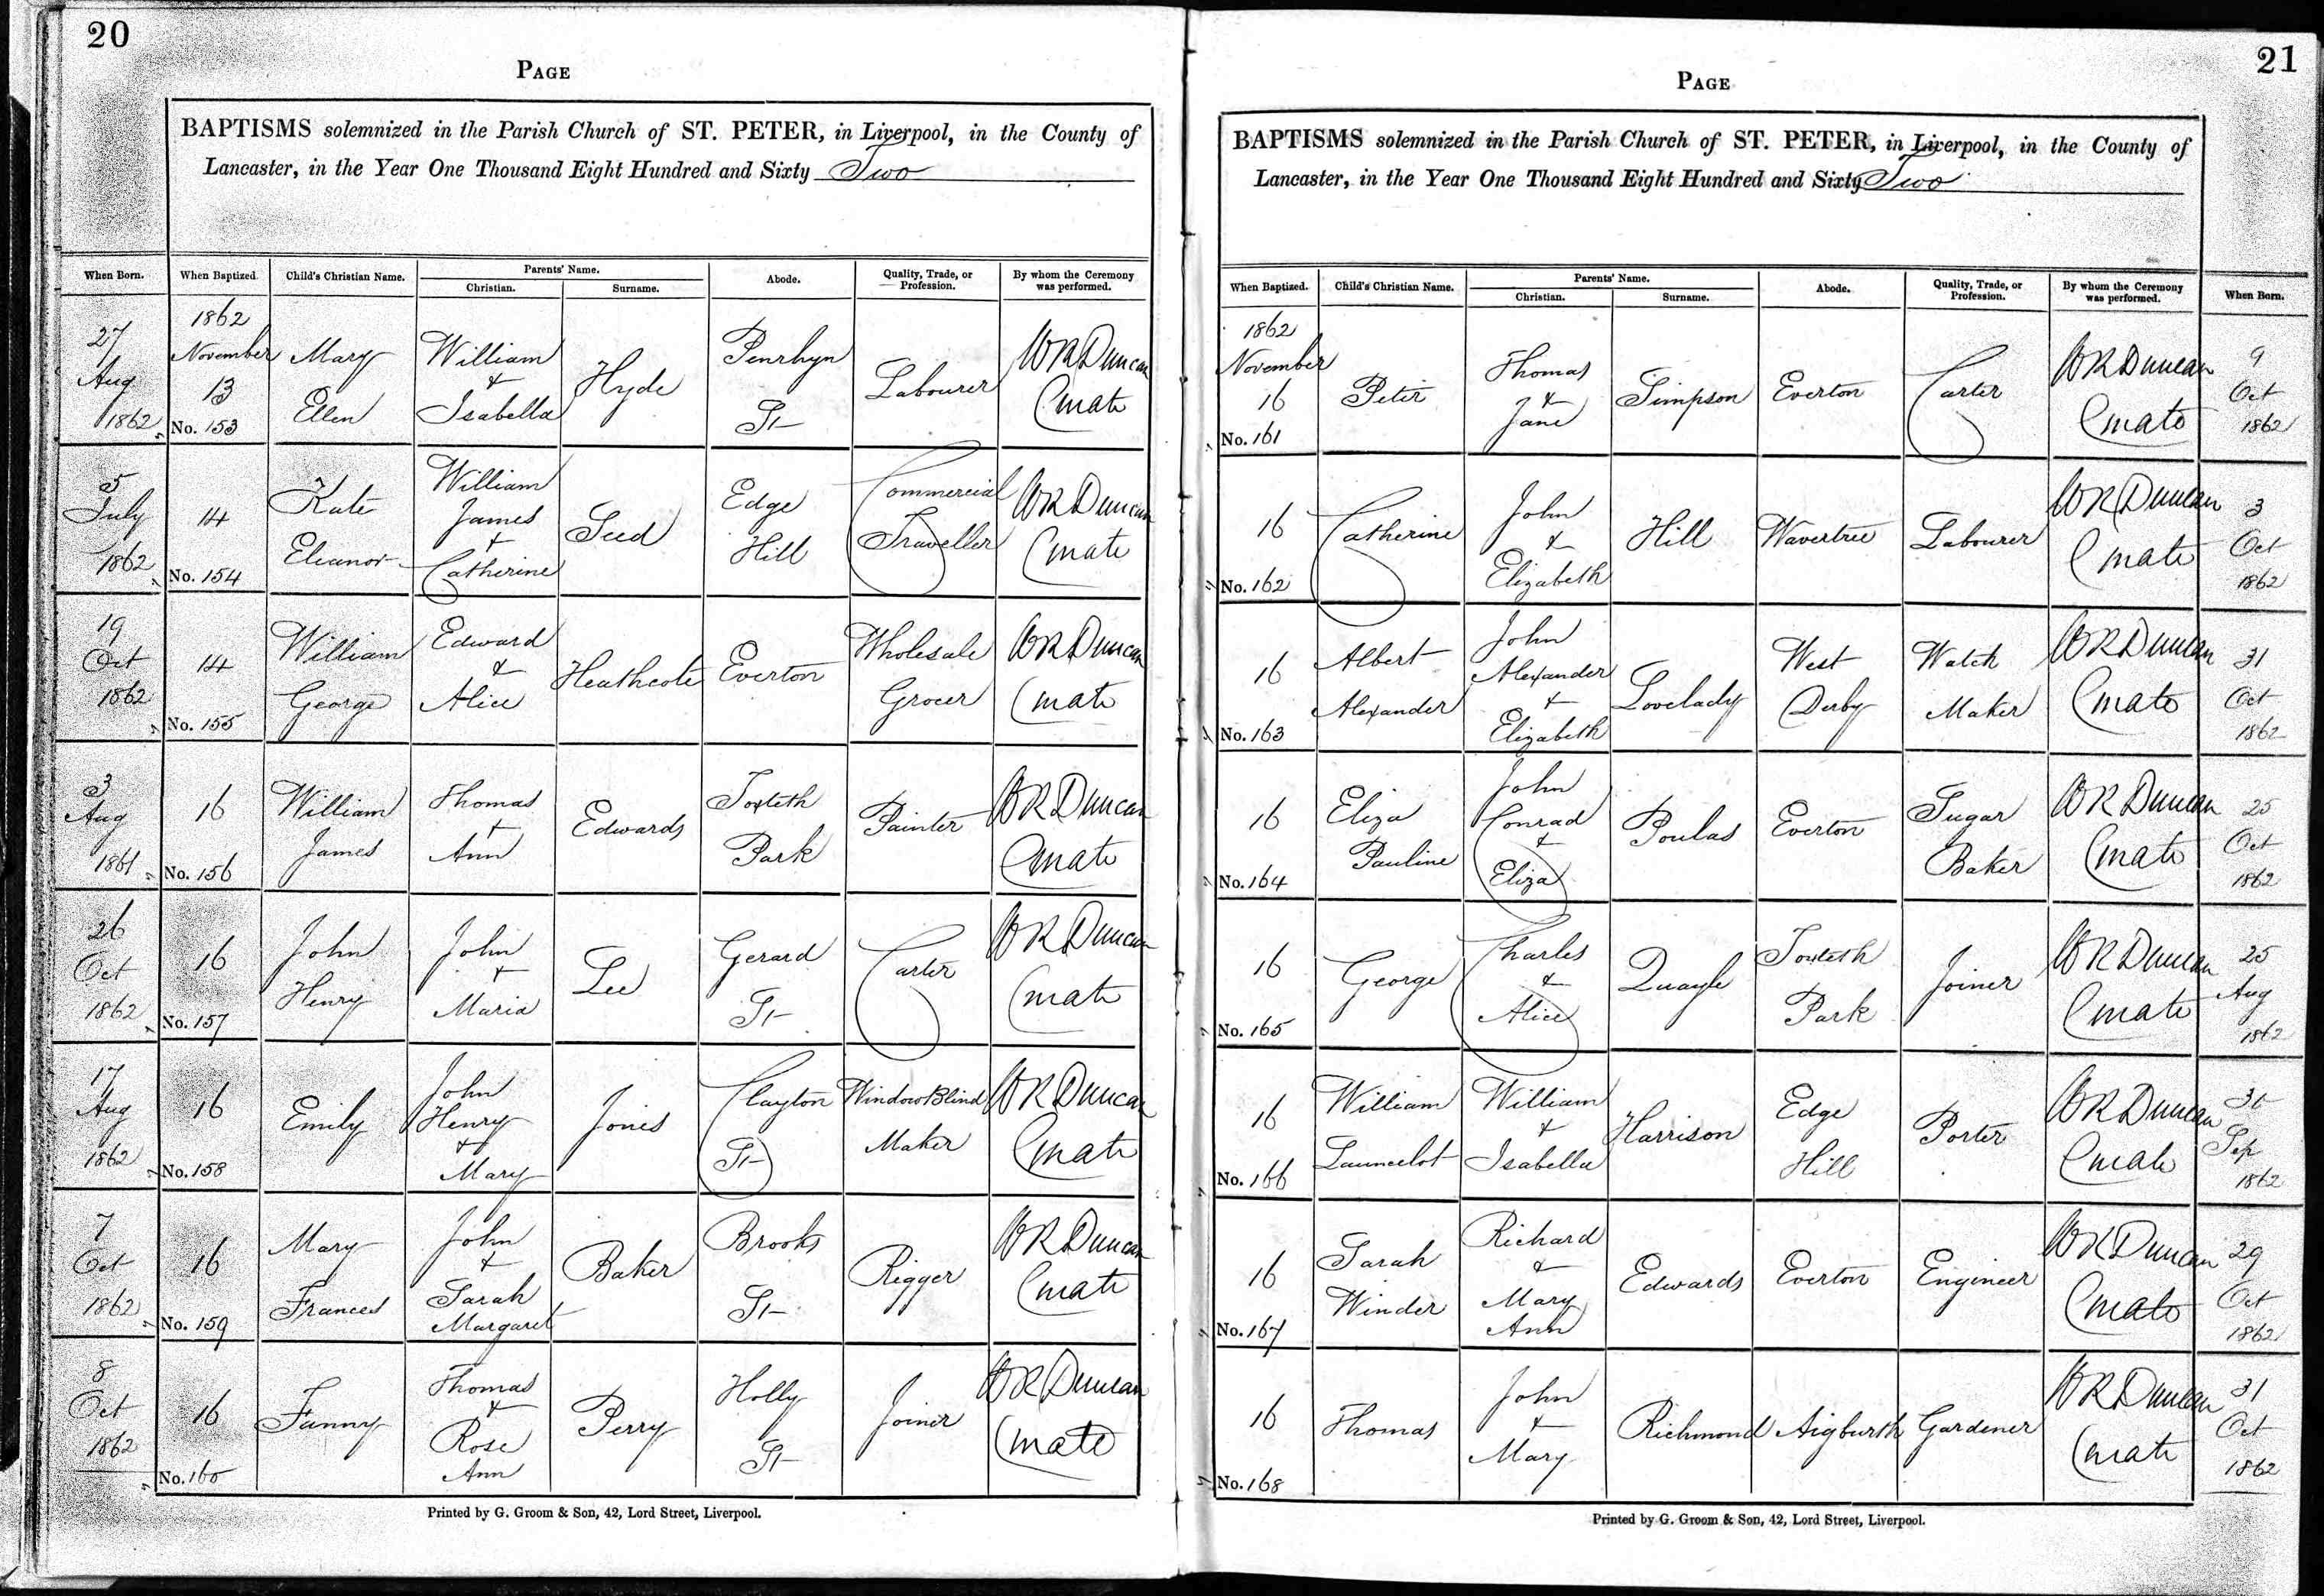 20
PAGE
BAPTISMS solemnized in the Parish Church of ST. PETER, in Liverpool, in the County of
Lancaster, in the Year One Thousand Eight Hundred and Sixty Two
When Born.
When Baptized
Child's Christian Name.
Parents' Name.
Christian.
Surname.
Abode.
Quality, Trade, or
Profession.
By whom the Ceremony
was performed.
27
Aug
1862
1862
November
13
No. 153
Mary
Ellen
William
&
Isabella
Hyde
Penrhyn
St
Labourer
WR Duncan
Curate
5
July
1862
14
No. 154
Kate
Eleanor
William
James
+
Catherine
Seed
Edge
Hill
Commercial
Traveller
WR Duncan
Curate
19
Oct
1862
14
No. 155
William
George
Edward
&
Alice
Heathcote
Everton
Wholesale
Grocer
WR Duncan
Curate
3
Aug
1861
16
No. 156
William
James
Thomas
+
Ann
Edwards
Toxteth
Park
Painter
WR Duncan
Curate
26
Oct
1862
16
No. 157
John
Henry
John
+
Maria
Lee
Gerard
St
Carter
WR Duncan
Curate
17
Aug
1862
16
No. 158
Emily
John
Henry
&
Mary
Jones
Clayton
St
Window Blind
Maker
WR Duncan
Curate
7
Oct
1862
16
No. 159
Mary
Frances
John
+
Sarah
Margaret
Baker
Brooks
St
Rigger
WR Duncan
Curate
8
Oct
1862
16
No. 160
Fanny
Thomas
&
Rose
Ann
Perry
Holly
St
Joiner
WR Duncan
Curate
Printed by G. Groom & Son, 42, Lord Street, Liverpool.
21
PAGE
BAPTISMS solemnized in the Parish Church of ST. PETER, in Liverpool, in the County of
Lancaster, in the Year One Thousand Eight Hundred and Sixty Two
When Baptized.
Child's Christian Name.
Parents' Name.
Christian.
Surname.
Abode.
Quality, Trade, or
Profession.
By whom the Ceremony
was performed.
When Born.
1862
November
16
No. 161
Peter
Thomas
&
Jane
Simpson
Everton
Carter
WR Duncan
Curate
9
Oct
1862
16
No. 162
Catherine
John
&
Elizabeth
Hill
Wavertree
Labourer
WR Duncan
Curate
3
Oct
1862
16
No. 163
Albert
Alexander
John
Alexander
+
Elizabeth
Lovelady
West
Derby
Watch
Maker
WR Duncan
Curate
31
Oct
1862
16
No. 164
Eliza
Pauline
John
Conrad
&
Eliza
Poulas
Everton
Sugar
Baker
WR Duncan
Curate
25
Oct
1862
16
No. 165
George
Charles
&
Alice
Quayle
Toxteth
Park
Joiner
WR Duncan
Curate
25
Aug
1862
16
No. 166
William
Launcelot
William
+
Isabella
Harrison
Edge
Hill
Porter
WR Duncan
Curate
Sep
1862
16
No. 167
Sarah
Winder
Richard
&
Mary
Ann
Edwards
Everton
Engineer
WR Duncan
Curate
29
Oct
1862
16
No. 168
Thomas
John
+
Mary
Richmond
Aigburth
Gardener
WR Duncan
Curate
31
Oct
1862
Printed by G. Groom & Son, 42, Lord Street, Liverpool.